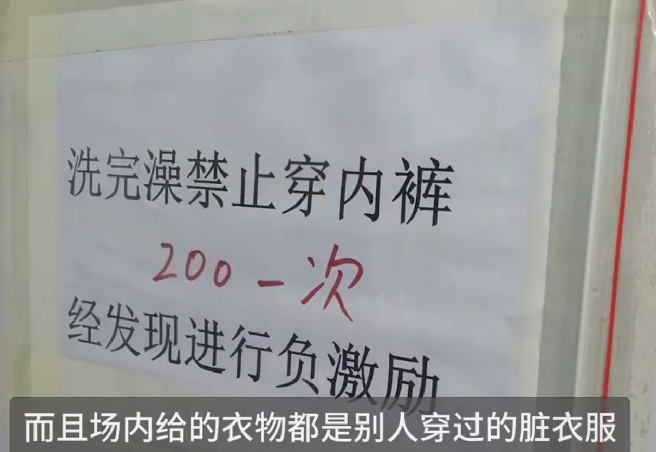 洗完澡禁止穿内裤
200一次
经发现进行负激励
而且场内给的衣物都是别人穿过的脏衣服